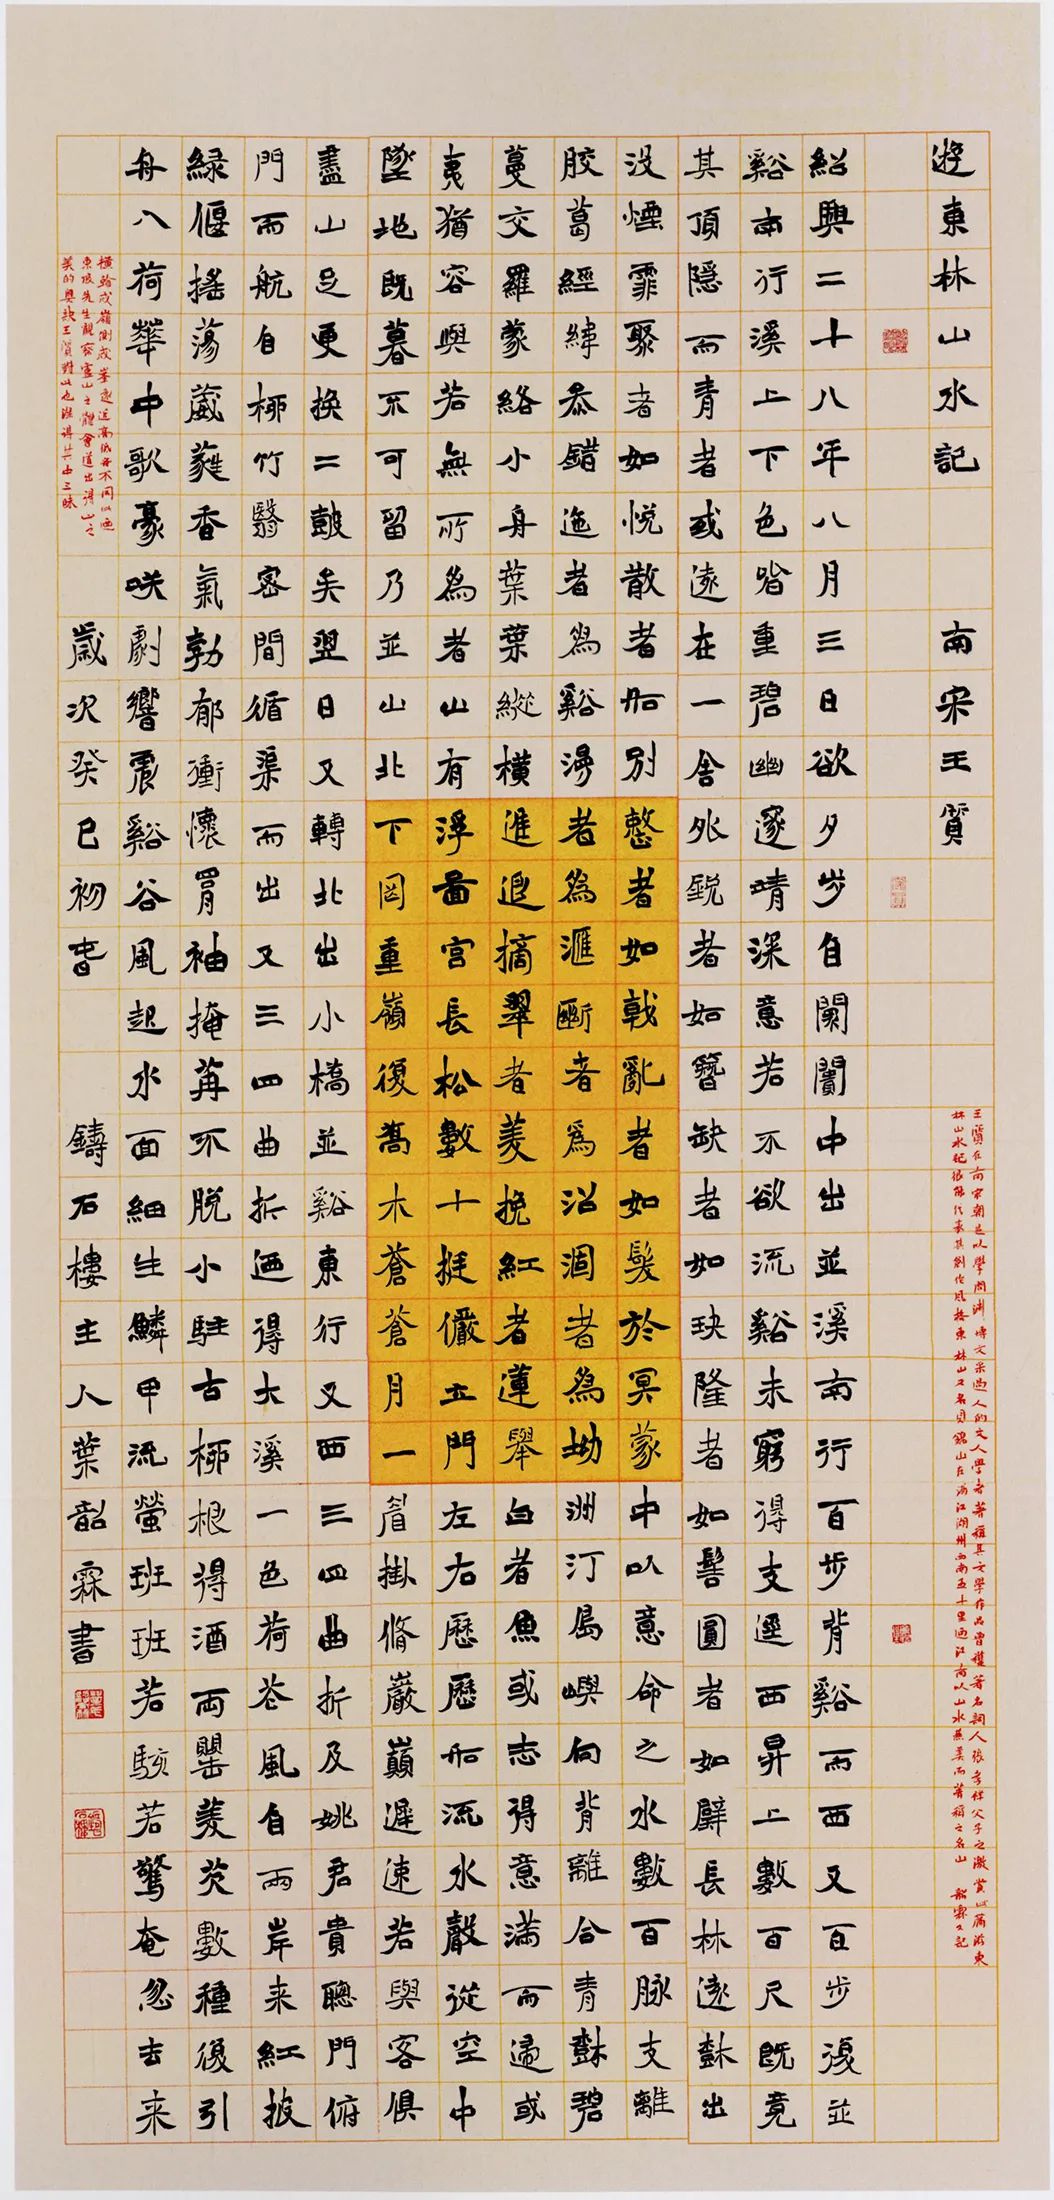 遊東林山水記 南宋王質
王質在南宋朝是以學問淵博文采過人的文人學者著稱其文學作品曾獲著名詞人張孝祥父子之激賞此篇游東
林山水記很能代表其創作風格東林山又名貝錦山在浙江湖州西南五十里迺江南以山水兼美而著稱之名山 韶霖又記
紹興二十八年八月三日欲夕步自闌闠中出並溪南行百步背谿而西又百步復並
谿南行溪上下色皆重碧幽邃靖深意若不欲流谿未窮得支逕西昇上數百尺既竟
其頂隱而青者或遠在一舍外銳者如簪缺者如玦隆者如髻圓者如璧長林遠樹出
沒煙霏聚者如悅散者如別整者如戟亂者如髮於冥蒙中以意命之水數百脉支離
胶葛經緯叅錯迤者為谿漫者為滙斷者為沼涸者為坳洲汀島嶼向背離合青樹碧
蔓交羅蒙絡小舟葉葉縱橫進退摘翠者菱挽紅者蓮舉白者魚或志得意滿而歸或
夷猶容與若無所為者山有浮圖宮長松數十挺儼立門左右歷歷如流水聲從空中
墜地既暮不可留乃並山北下岡重嶺復喬木蒼蒼月一眉掛脩巖巔遲速若與客俱
盡山足更換二鼓矣翌日又轉北出小橋並谿東行又西三四曲折及姚君貴聰門俯
門而航自柳竹翳密間循渠而出又三四曲折迺得大溪一色荷花風自兩岸来紅披
綠偃搖蕩葳蕤香氣勃郁衝懷罥袖掩苒不脫小駐古柳根得酒兩罌菱芡數種復引
舟入荷華中歌豪咲劇響震谿谷風起水面細生鱗甲流螢班班若駭若驚奄忽去来
橫看成嶺側成峯遠近高低各不同此迺
東坡先生觀察廬山之體會道出得山之
美的奧訣王質對此也深得其中三昧
歲次癸巳初春 鑄石樓主人葉韶霖書